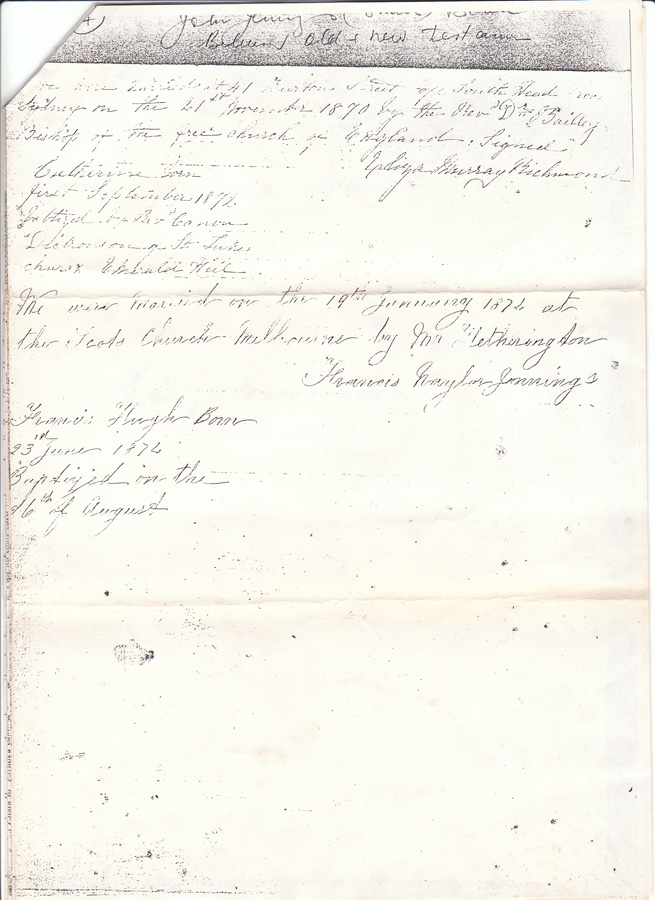 Between old & new testament
we were married at 41 Burton Street off South Head
Sydney on the 21st November 1870 by the Revd Dr Bailley
Bishop of the free church of England. Signed
Murray Richmond
Catherine Born
first September 1872
by Revd Canon
Dickenson of St Lukes
church Emerald Hill
We were married on the 19th January 1874 at
the Scots Church Melbourne by Mr Hetherington
Francis Naylor Jennings
Francis Hugh Born
23rd June 1874
Baptized on the
16th of August